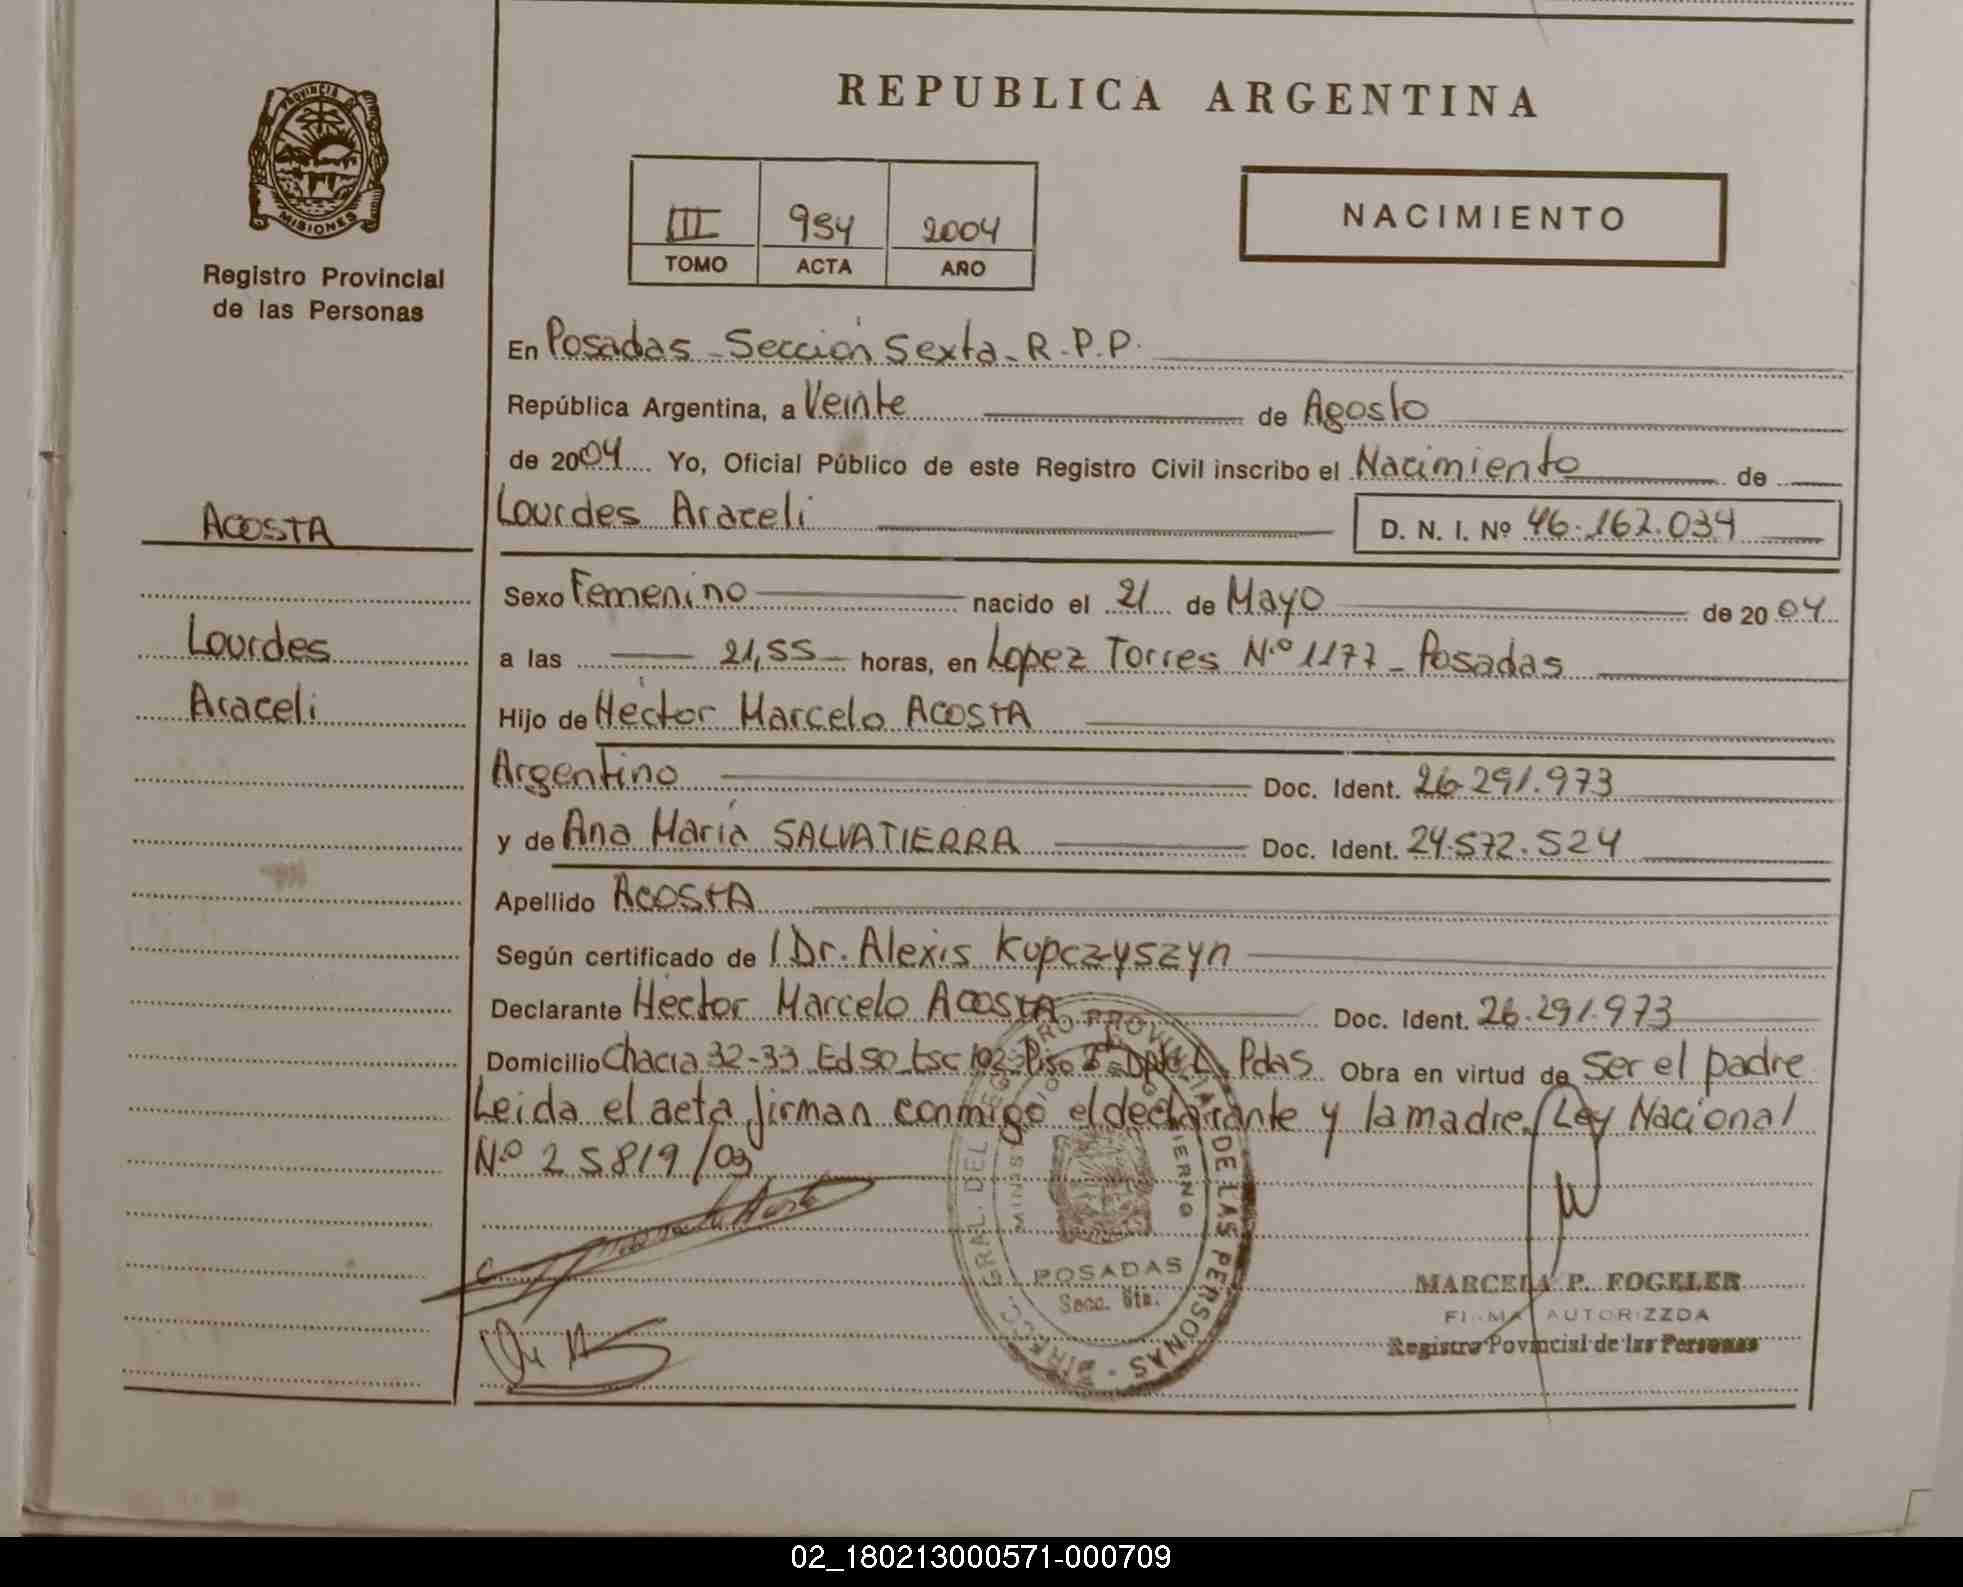 REPUBLICA ARGENTINA
PROVINCIA DE
MISIONES
Registro Provincial
de las Personas
III 954 2004
TOMO ACTA AÑO
NACIMIENTO
En Posadas - Sección Sexta - R.P.P.
República Argentina, a Veinte de Agosto
de 2004 Yo, Oficial Público de este Registro Civil inscribo el Nacimiento de
Lourdes Araceli D. N. I. Nº 46.162.034
ACOSTA
Lourdes
Araceli
Sexo Femenino nacido el 21 de Mayo de 2004
a las 21,55 horas, en Lopez Torres N.º 1177 - Posadas
Hijo de Héctor Marcelo ACOSTA
Argentino Doc. Ident. 26.291.973
y de Ana María SALVATIERRA Doc. Ident. 24.572.524
Apellido ACOSTA
Según certificado de l Dr. Alexis Kupczyszyn
Declarante Héctor Marcelo ACOSTA Doc. Ident. 26.291.973
Domicilio Chacra 32-33 Ed 50 Esc 102 Piso Dpto Pdas Obra en virtud de Ser el padre
Leida el acta firman conmigo el declarante y la madre. Ley Nacional
Nº 25819/03
DIRECC. GRAL. DEL REGISTRO PROVINCIAL DE LAS PERSONAS
POSADAS
Secc. 6ta.
MARCELA P. FOGELER
FIRMA AUTORIZZDA
Registro Povincial de las Personas
02_180213000571-000709